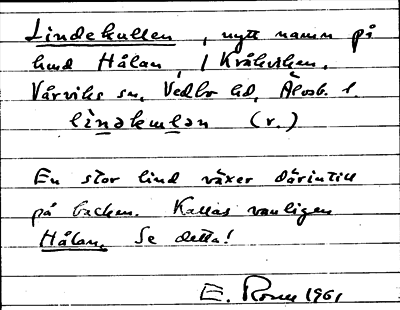 Lindekullen, nytt namn på
hmd Hålan, i Kråkviken,
Vårviks sn, Vedbo hd, Älvsb. l.
lìnəkɯlən (r.)
En stor lind växer därintill
på backen. Kallas vanligen
Hålan, Se detta!
E. Rosn 1961